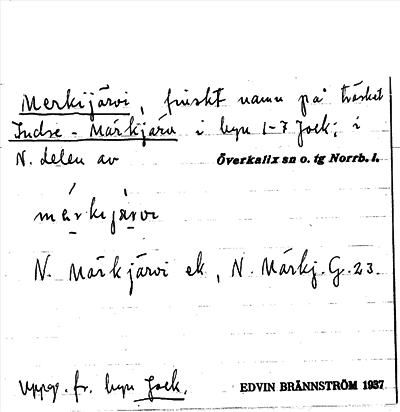 Merkijärvi, finskt namn på träsket
Indre-Märkjärv i byn 1-7 Jock; i
N. delen av Överkalix sn o. tg Norrb. l.
márkijàrvi
N. Märkjärvi ek, N. Märkj. G. 23.
Uppg. fr. byn Jock. EDVIN BRÄNNSTRÖM 1937